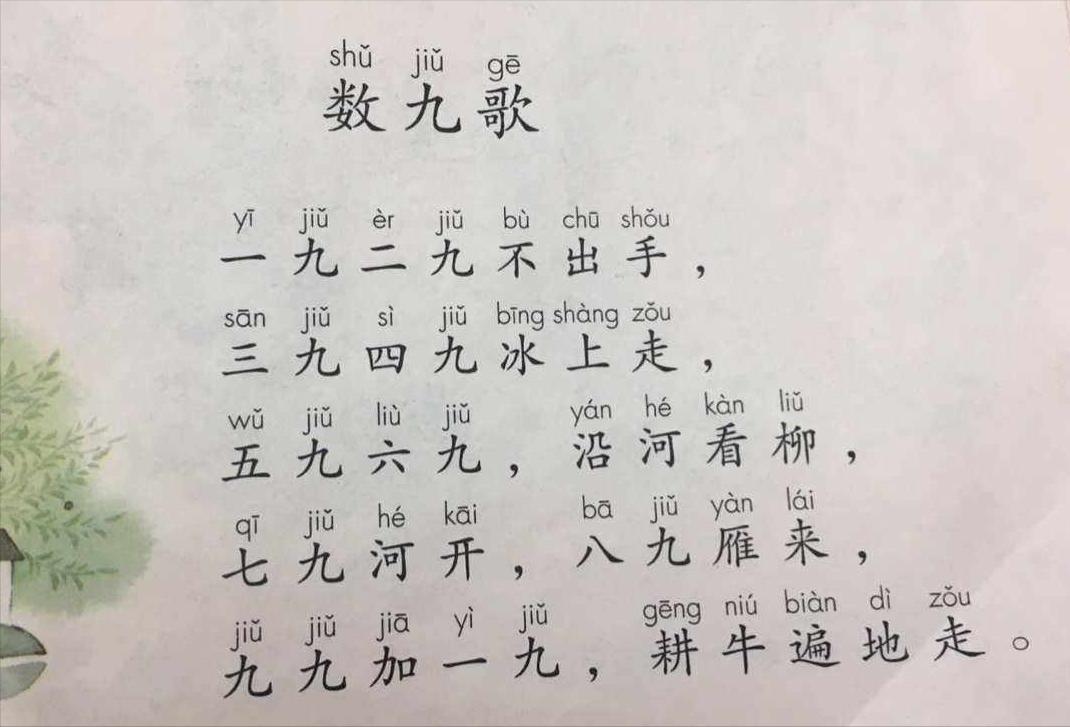 shǔ jiǔ gē
数九歌
yī jiǔ èr jiǔ bù chū shǒu
一九二九不出手，
sān jiǔ sì jiǔ bīng shàng zǒu
三九四九冰上走，
wǔ jiǔ liù jiǔ yán hé kàn liǔ
五九六九，沿河看柳，
qī jiǔ hé kāi bā jiǔ yàn lái
七九河开，八九雁来，
jiǔ jiǔ jiā yì jiǔ gēng niú biàn dì zǒu
九九加一九，耕牛遍地走。